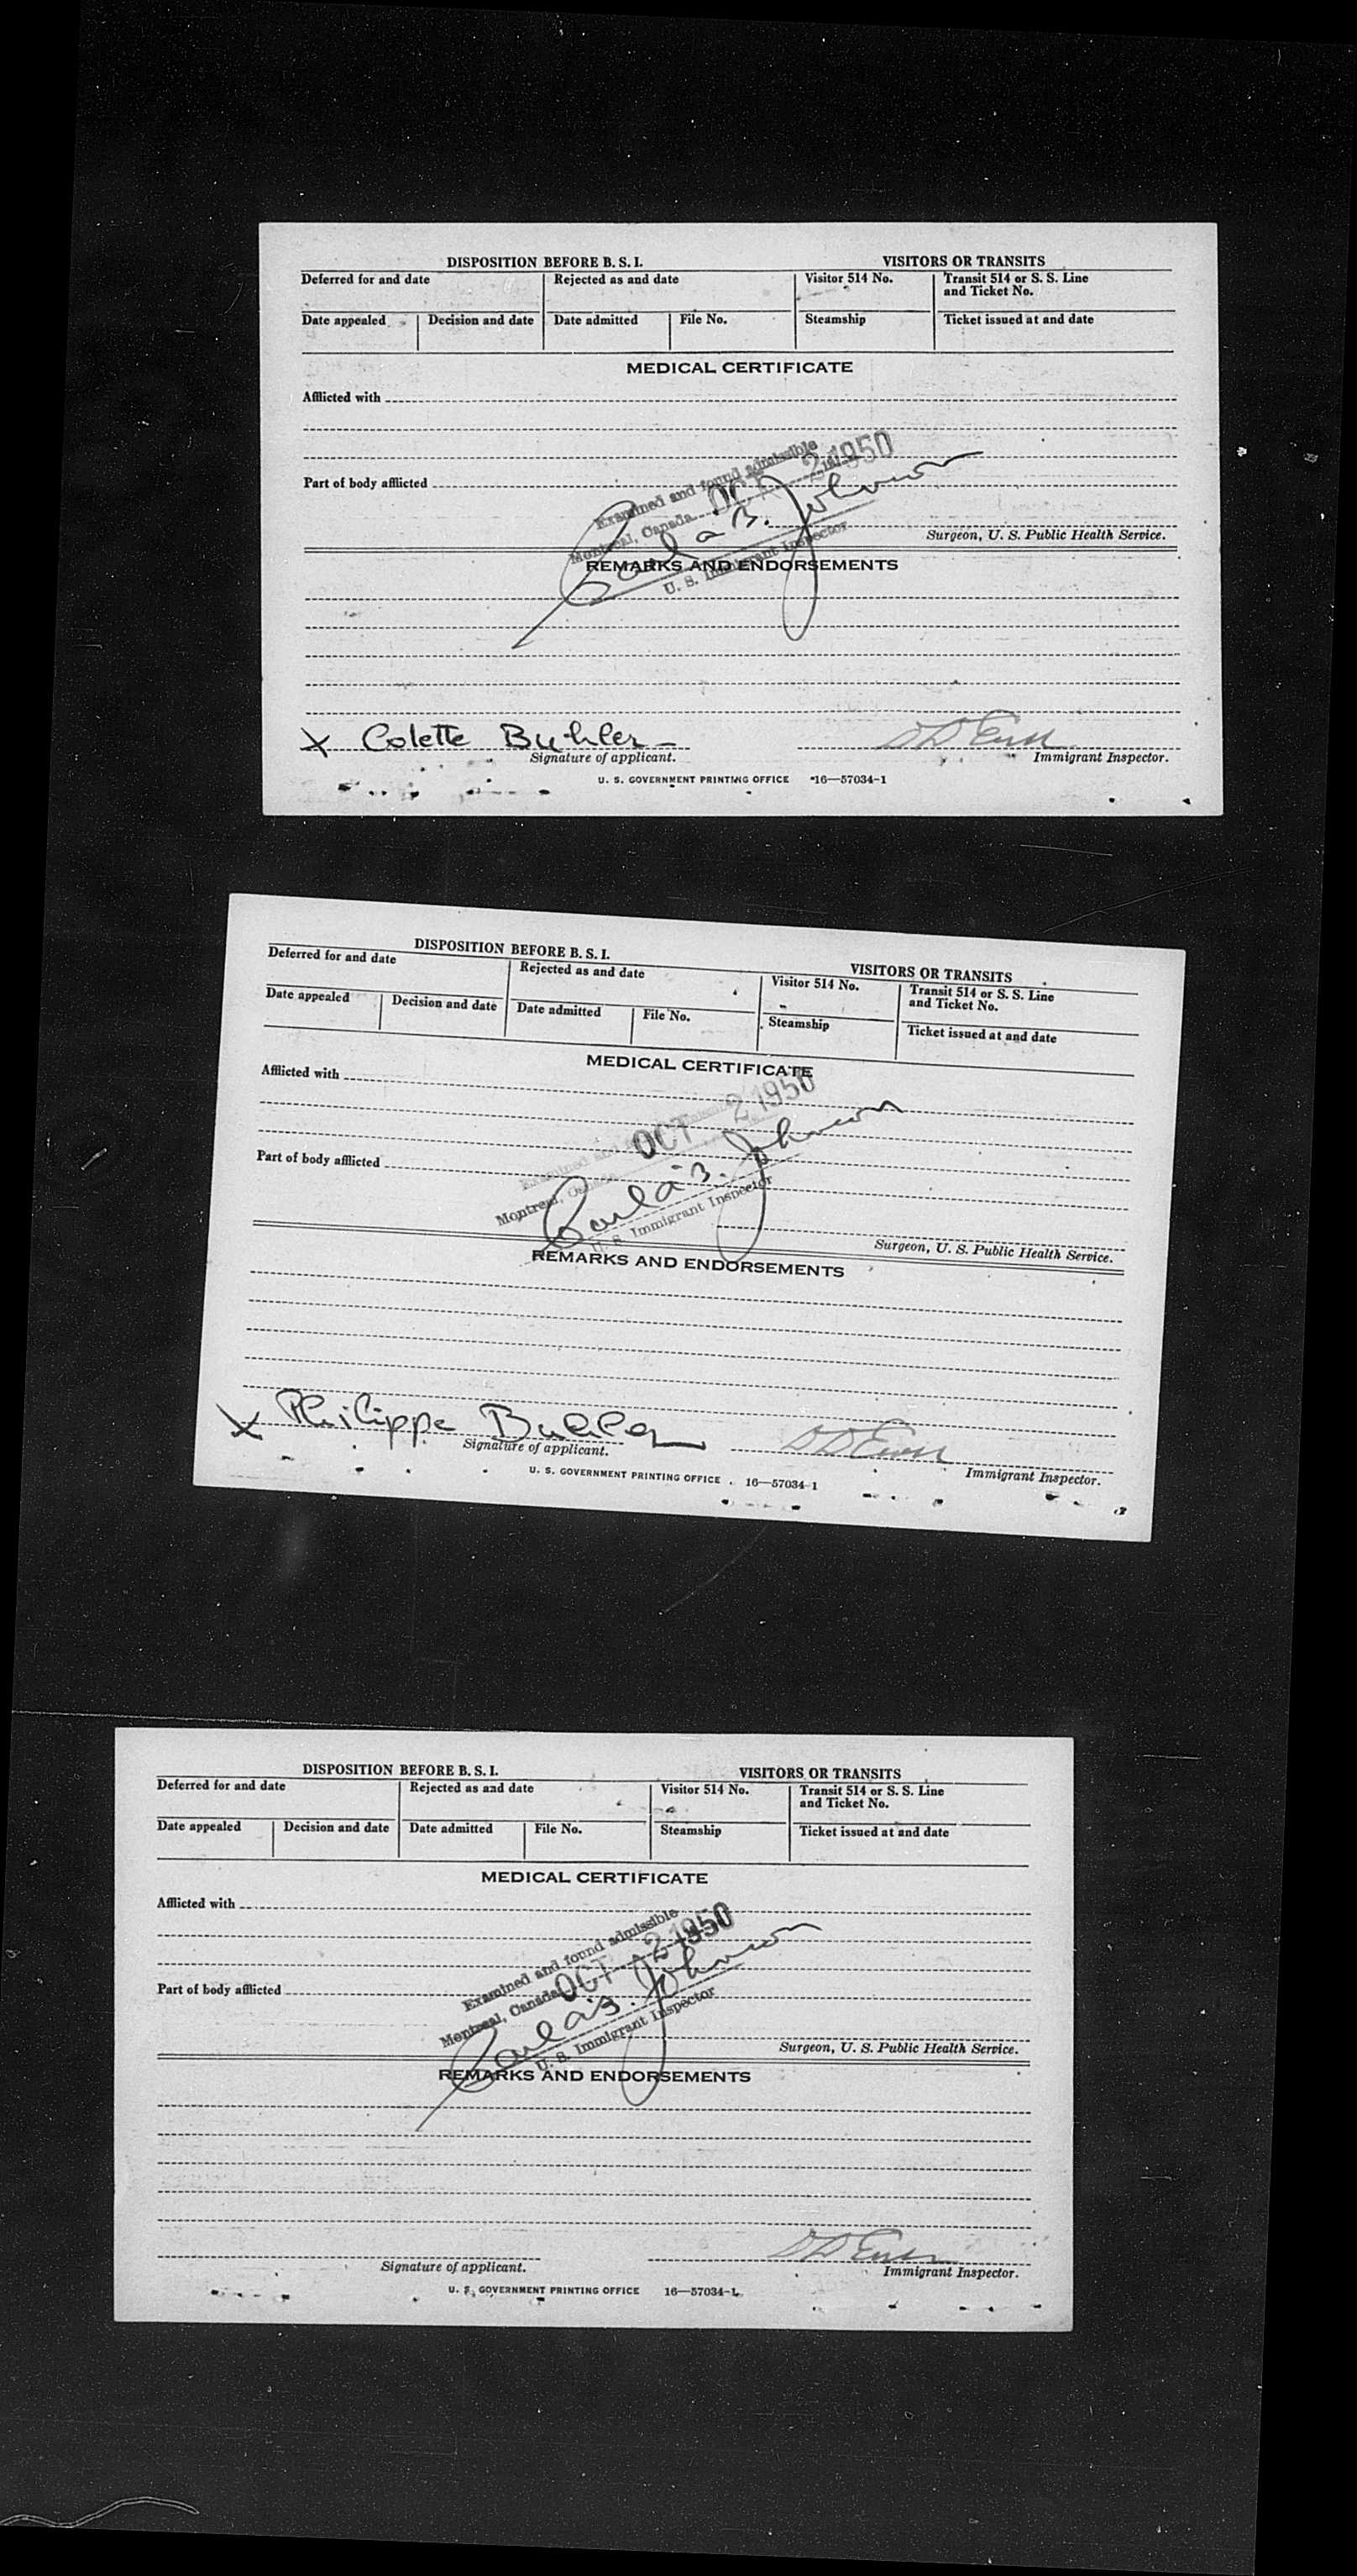 DISPOSITION BEFORE B. S. I. VISITORS OR TRANSITS
Deferred for and date Rejected as and date Visitor 514 No. Transit 514 or S. S. Line
and Ticket No.
Date appealed Decision and date Date admitted File No. Steamship Ticket issued at and date
MEDICAL CERTIFICATE
Afflicted with
Examined and found admissible
Part of body afflicted
Montreal, Canada OCT 2 1950
Carl A. B. Johnson
Surgeon, U. S. Public Health Service.
U. S. Immigrant Inspector
REMARKS AND ENDORSEMENTS
X Colette Buhler
Signature of applicant. Immigrant Inspector.
U. S. GOVERNMENT PRINTING OFFICE 16—57034-1
DISPOSITION BEFORE B. S. I. VISITORS OR TRANSITS
Deferred for and date Rejected as and date Visitor 514 No. Transit 514 or S. S. Line
and Ticket No.
Date appealed Decision and date Date admitted File No. Steamship Ticket issued at and date
MEDICAL CERTIFICATE
Afflicted with
Examined and
Part of body afflicted
Montreal, Canada OCT 2 1950
Johnson
U. S. Immigrant Inspector
Surgeon, U. S. Public Health Service.
REMARKS AND ENDORSEMENTS
X Philippe Buhler
Signature of applicant. Immigrant Inspector.
U. S. GOVERNMENT PRINTING OFFICE 16—57034-1
DISPOSITION BEFORE B. S. I. VISITORS OR TRANSITS
Deferred for and date Rejected as and date Visitor 514 No. Transit 514 or S. S. Line
and Ticket No.
Date appealed Decision and date Date admitted File No. Steamship Ticket issued at and date
MEDICAL CERTIFICATE
Afflicted with
Examined and found admissible
Part of body afflicted
Montreal, Canada OCT 2 1950
Johnson
U. S. Immigrant Inspector
Surgeon, U. S. Public Health Service.
REMARKS AND ENDORSEMENTS
Signature of applicant. Immigrant Inspector.
U. S. GOVERNMENT PRINTING OFFICE 16—57034-1